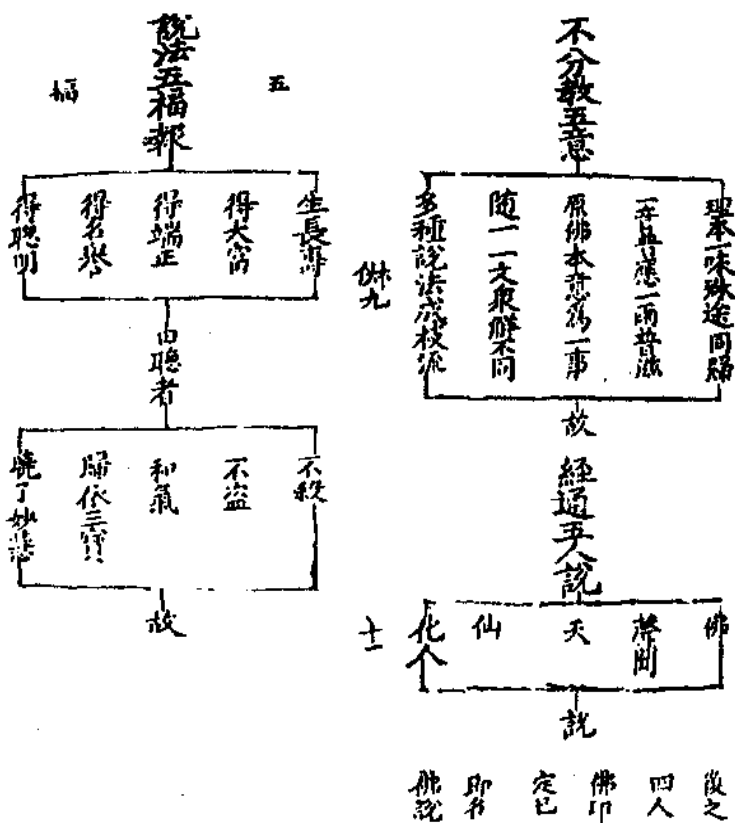 不分教五意
理本一味殊途同歸
一音普應一雨普滋
原佛本意為一事
隨一一文眾解不同
多種說法成枝流
故
經通五人說
佛
聲聞
天
仙
化人
說
後之
四人
佛印
定已
即名
佛說
十一
五
福
說法五福報
生長壽
得大富
得端正
得名譽
得聰明
由聽者
不殺
不盜
和氣
歸依三寶
曉了妙慧
故